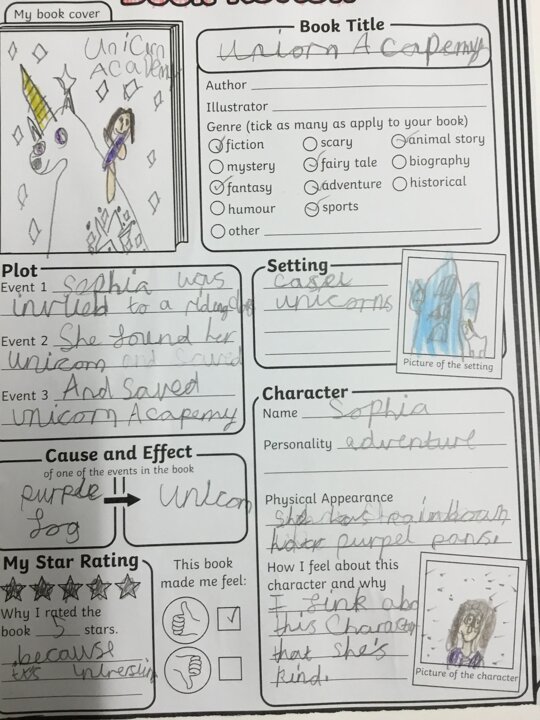 Book Review
My book cover
UniCun
ACademy
Book Title
Uniorn Academy
Author
Illustrator
Genre (tick as many as apply to your book)
fiction
scary
animal story
mystery
fairy tale
biography
fantasy
adventure
historical
humour
sports
other
Plot
Event 1 Sophia was
invited to a riding
Event 2 She found her
Unicorn and Saved
Event 3 And Saved
Unicorn Academy
Setting
casel
unicorns
Picture of the setting
Cause and Effect
of one of the events in the book
purple
fog
Unicorn
Character
Name Sophia
Personality adventure
Physical Appearance
She has rainbowm
purpel
How I feel about this
character and why
I fink abo
this Character
that she's
kind.
Picture of the character
My Star Rating
Why I rated the
book 5 stars.
because
This book
made me feel: